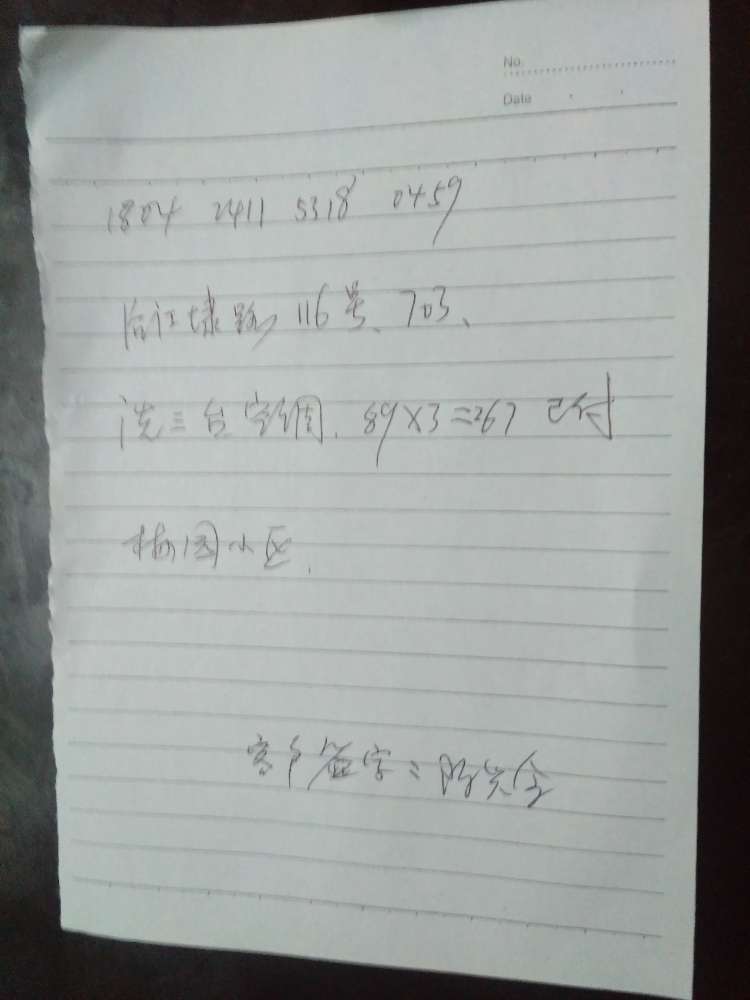 No.
Date
1804 2411 5318 0459
后江埭路116号、703、
洗三台空调、89×3=267 已付
梅园小区、
客户签字：